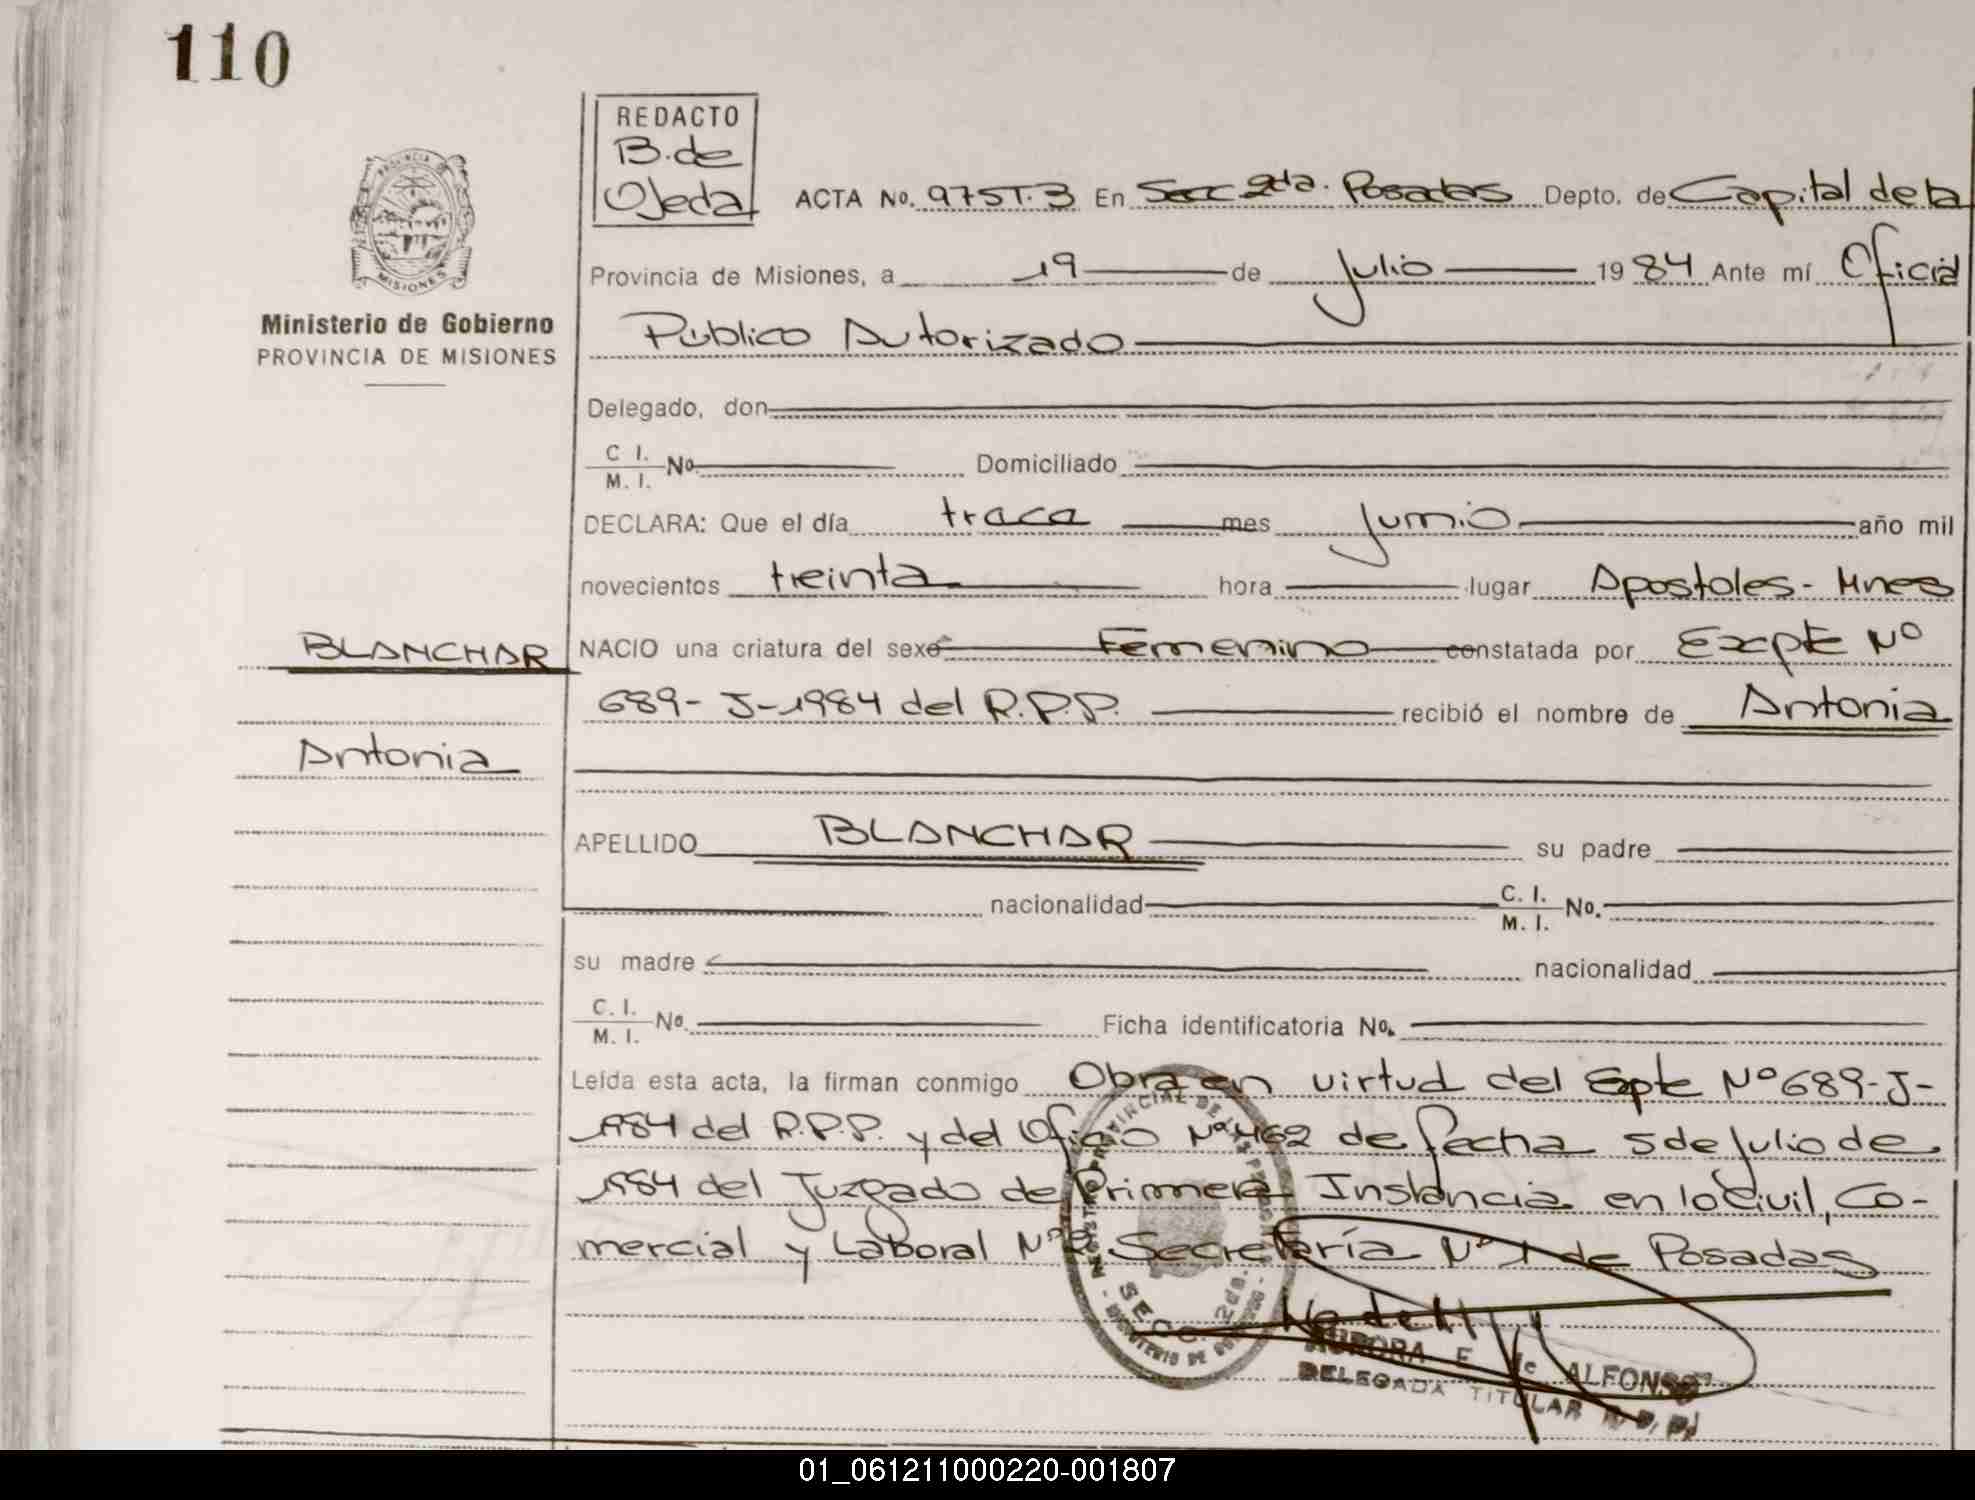 110
REDACTO
B. de
Ojeda
ACTA No. 975T.3 En Secc 2da. Posadas Depto. de Capital de la
Provincia de Misiones, a 19 de Julio 1984 Ante mí Oficial
Público Autorizado
Ministerio de Gobierno
PROVINCIA DE MISIONES
Delegado, don
C I.
M. I. No Domiciliado
DECLARA: Que el día trece mes Junio año mil
novecientos treinta hora lugar Apostoles - Mnes
BLANCHAR
NACIO una criatura del sexo Femenino constatada por Expte Nº
689-J-1984 del R.P.P. recibió el nombre de Antonia
Antonia
APELLIDO BLANCHAR su padre
nacionalidad C. I.
M. I. No.
su madre nacionalidad
C. I.
M. I. No. Ficha identificatoria No.
Leída esta acta, la firman conmigo Obra en virtud del Expte Nº 689-J-
1984 del R.P.P. y del Oficio Nº 462 de fecha 5 de Julio de
1984 del Juzgado de Primera Instancia en lo Civil, Co-
mercial y Laboral Nº 2 Secretaría Nº 1 de Posadas
SECC. 2da.
AURORA E. de ALFONSO
DELEGADA TITULAR R. P. P.
01_061211000220-001807